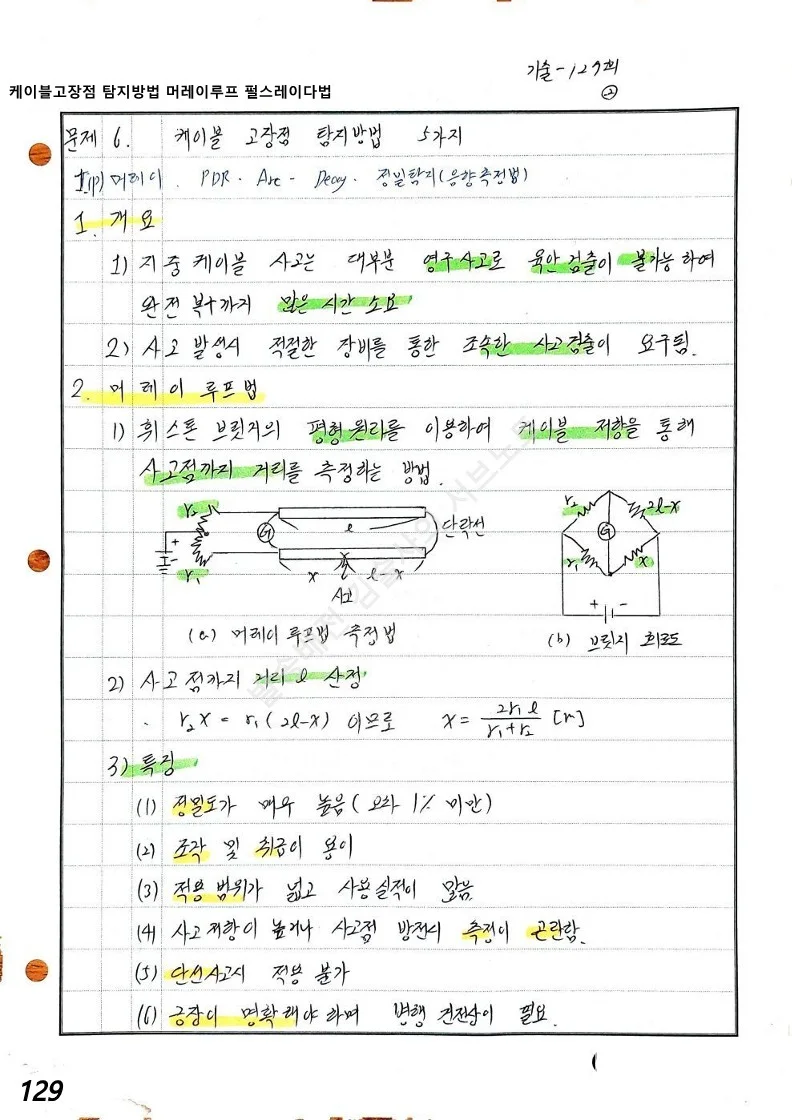 기술-129회
②
케이블고장점 탐지방법 머레이루프 펄스레이다법
문제 6. 케이블 고장점 탐지방법 5가지
Tip) 머레이 . PDR . Arc - Decay . 정밀탐지(음향측정법)
1. 개요
1) 지중케이블 사고는 대부분 영구사고로 육안검출이 불가능하여
완전 복구까지 많은 시간 소요
2) 사고 발생시 적절한 장비를 통한 조속한 사고검출이 요구됨.
2. 머레이 루프법
1) 휘스톤 브릿지의 평형원리를 이용하여 케이블 저항을 통해
사고점까지 거리를 측정하는 방법.
r₂ G ℓ 단락선
+ - r₁ x ℓ-x
사고
r₂ 2ℓ-x
G
r₁ x
+ -
(a) 머레이루프법 측정법
(b) 브릿지 회로도
2) 사고점까지 거리 ℓ 산정
. r₂x = r₁(2ℓ-x) 이므로 x = 2r₁ℓ / r₁+r₂ [m]
3) 특징
(1) 정밀도가 매우 높음(오차 1% 미만)
(2) 조작 및 취급이 용이
(3) 적용범위가 넓고 사용실적이 많음
(4) 사고저항이 높거나 사고점 방전시 측정이 곤란함.
(5) 단선사고시 적용 불가
(6) 긍장이 명확해야하며 병행 건전상이 필요.
129